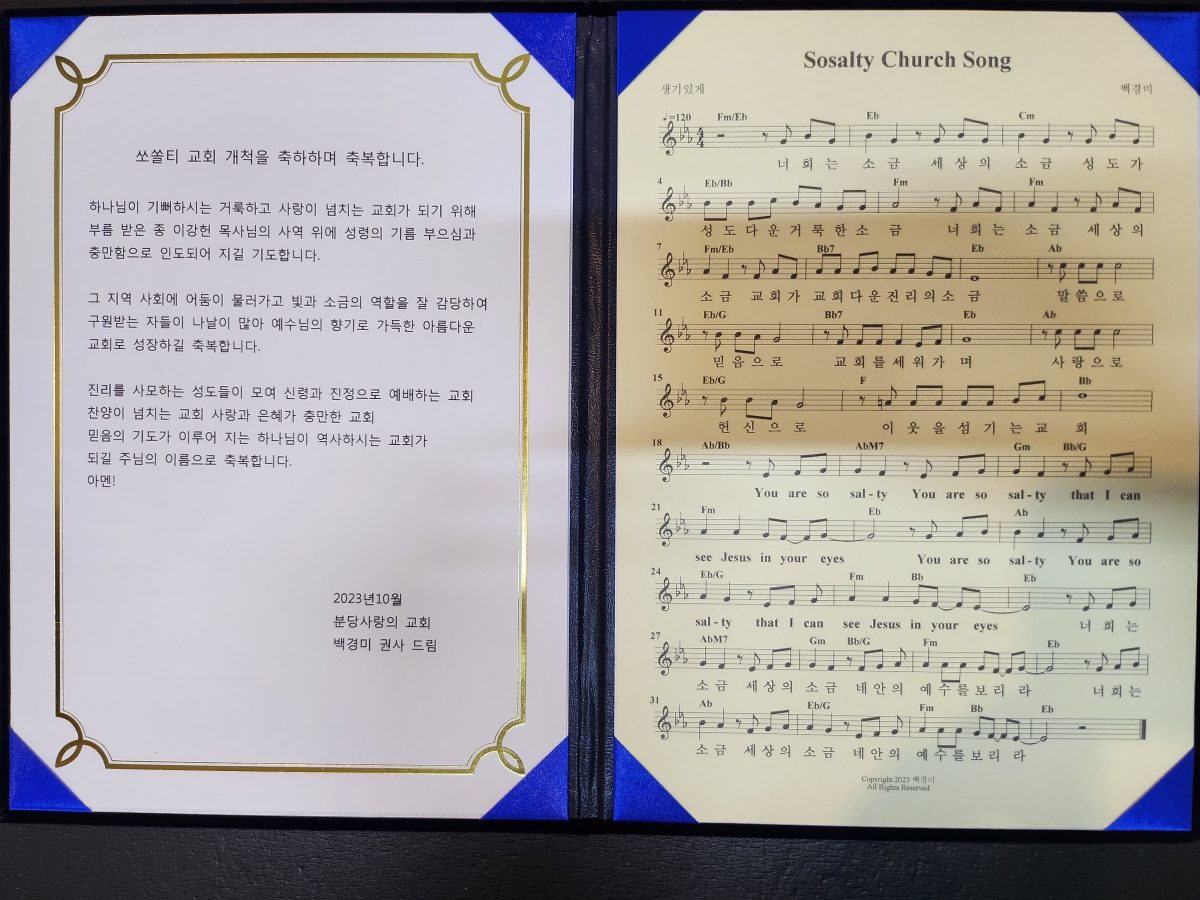 쏘쏠티 교회 개척을 축하하며 축복합니다.
하나님이 기뻐하시는 거룩하고 사랑이 넘치는 교회가 되기 위해
부름 받은 종 이강헌 목사님의 사역 위에 성령의 기름 부으심과
충만함으로 인도되어 지길 기도합니다.
그 지역 사회에 어둠이 물러가고 빛과 소금의 역할을 잘 감당하여
구원받는 자들이 나날이 많아 예수님의 향기로 가득한 아름다운
교회로 성장하길 축복합니다.
진리를 사모하는 성도들이 모여 신령과 진정으로 예배하는 교회
찬양이 넘치는 교회 사랑과 은혜가 충만한 교회
믿음의 기도가 이루어 지는 하나님이 역사하시는 교회가
되길 주님의 이름으로 축복합니다.
아멘!
2023년10월
분당사랑의 교회
백경미 권사 드림
Sosalty Church Song
생기있게 백경미
♩=120 Fm/Eb Eb Cm
너 희 는 소 금 세 상 의 소 금 성 도 가
4 Eb/Bb Fm Fm
성 도 다 운 거 룩 한 소 금 너 희 는 소 금 세 상 의
7 Fm/Eb Bb7 Eb Ab
소 금 교 회 가 교 회 다 운 진 리 의 소 금 말 씀 으 로
11 Eb/G Bb7 Eb Ab
믿 음 으 로 교 회 를 세 워 가 며 사 랑 으 로
15 Eb/G F Bb
헌 신 으 로 이 웃 을 섬 기 는 교 회
18 Ab/Bb AbM7 Gm Bb/G
You are so sal - ty You are so sal - ty that I can
21 Fm Eb Ab
see Jesus in your eyes You are so sal - ty You are so
24 Eb/G Fm Bb Eb
sal - ty that I can see Jesus in your eyes 너 희 는
27 AbM7 Gm Bb/G Fm Eb
소 금 세 상 의 소 금 네 안 의 예 수 를 보 리 라 너 희 는
31 Ab Eb/G Fm Bb Eb
소 금 세 상 의 소 금 네 안 의 예 수 를 보 리 라
Copyright 2023 백경미
All Rights Reserved